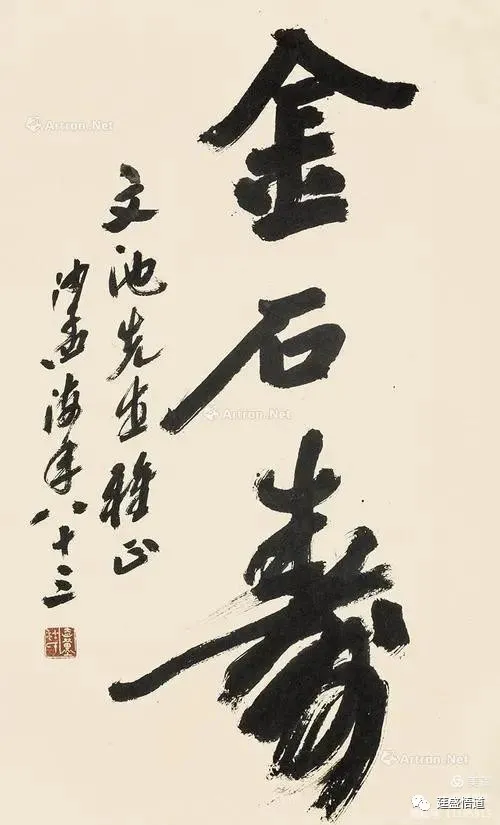 金石寿
文池先生雅正
沙孟海年八十三
Artron.Net
Artron.Net
Artron.Net
Artron.Net
莛盛悟道